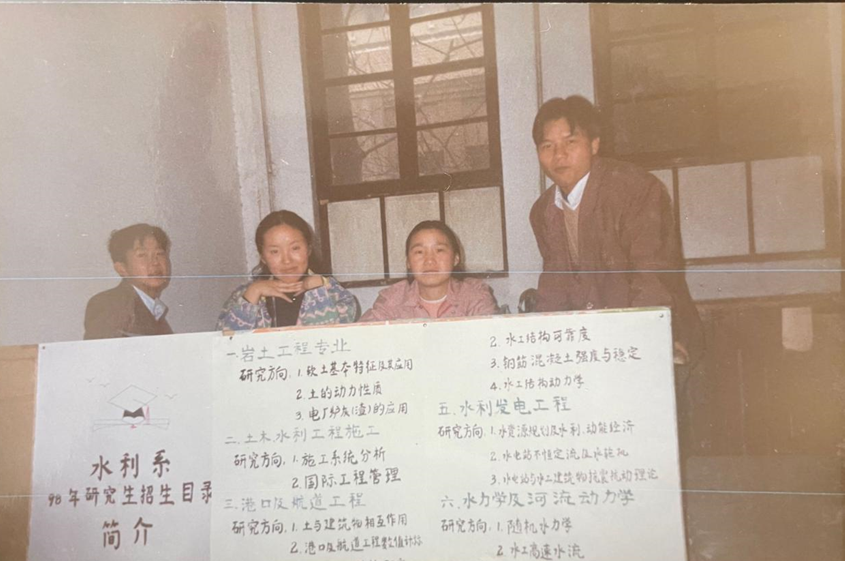 水利系
98年研究生招生目录
简介
一.岩土工程专业
研究方向.1.软土基本特征及其应用
2.土的动力性质
3.电厂炉灰(渣)的应用
二.土木水利工程施工
研究方向.1.施工系统分析
2.国际工程管理
三.港口及航道工程
研究方向.1.土与建筑物相互作用
2.港口及航道工程数值计
2.水工结构可靠度
3.钢筋混凝土强度与稳定
4.水工结构动力学
五.水利发电工程
研究方向.1.水资源规划及水利.动能经济
2.水电站不恒定流及水轮机
3.水电站与水工建筑物抗震抗动理论
六.水力学及河流动力学
研究方向.1.随机水力学
2.水工高速水流